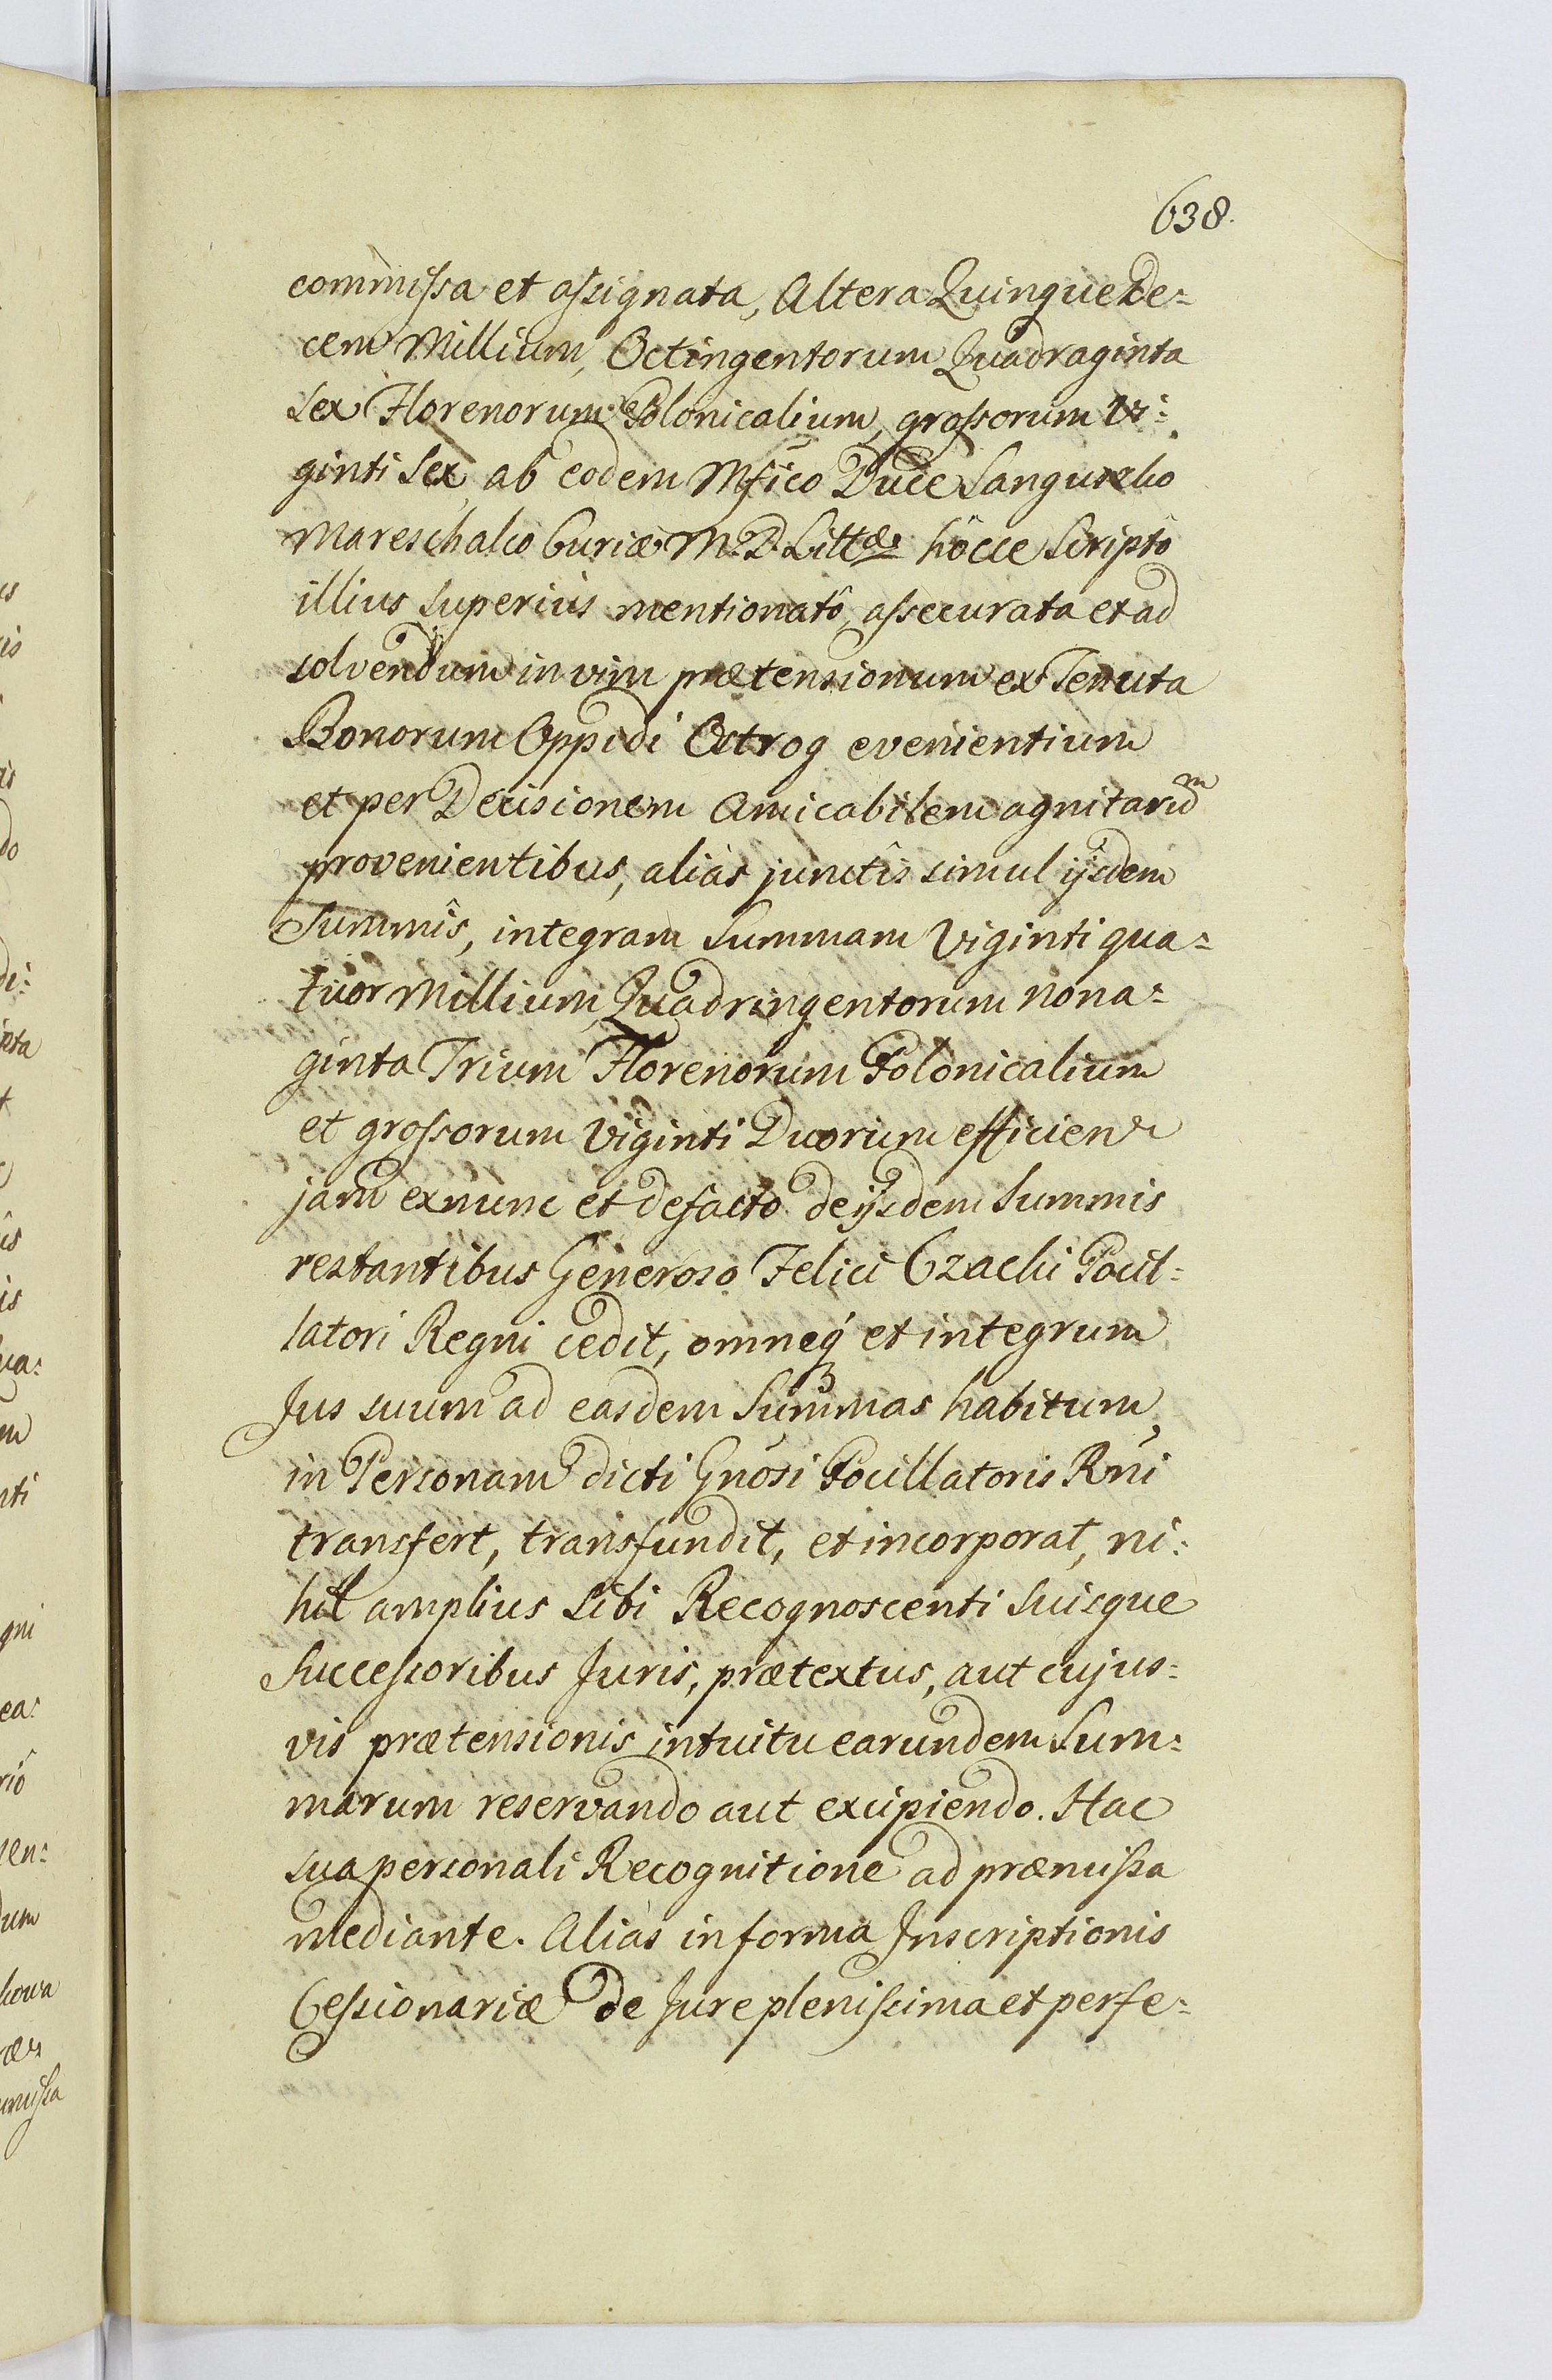 638.
commissa et assignata, Altera Quinque De=
cem Millium, Octingentorum Quadraginta
Sex Florenorum Polonicalium, grossorum Vi=
ginti Sex, ab eodem Mfico Duce Sanguszko
Mareschalco Curiæ M. D. Littæ hôcce Scriptô
illius superius mentionatô, assecurata et ad
solvendum in vim prætensionum ex Tenuta
Bonorum Oppidi Ostrog evenientium
et per Decisionem Amicabilem agnitarum
provenientibus, aliàs junctîs simul ijsdem
Summîs, integram Summam Viginti qua=
tuor Millium, Quadringentorum nona=
ginta Trium Florenorum Polonicalium
et grossorum Viginti Duorum efficien
jam exnunc et defacto de ijsdem Summis
restantibus Generoso Felici Czacki Pocil=
latori Regni cedit, omneq3 et integrum
Jus suum ad easdem Summas habitum,
in Personam dicti Gnosi Pocillatoris Rni
transfert, transfundit, et incorporat, ni=
hil amplius Sibi Recognoscenti Suisque
Successoribus Juris, prætextus, aut cujus=
vis prætensionis intuitu earundem Sum=
marum reservando aut excipiendo. Hac
sua personali Recognitione ad præmissa
mediante. Aliàs in forma Inscriptionis
Cessionariæ de Jure plenissima et perfe=